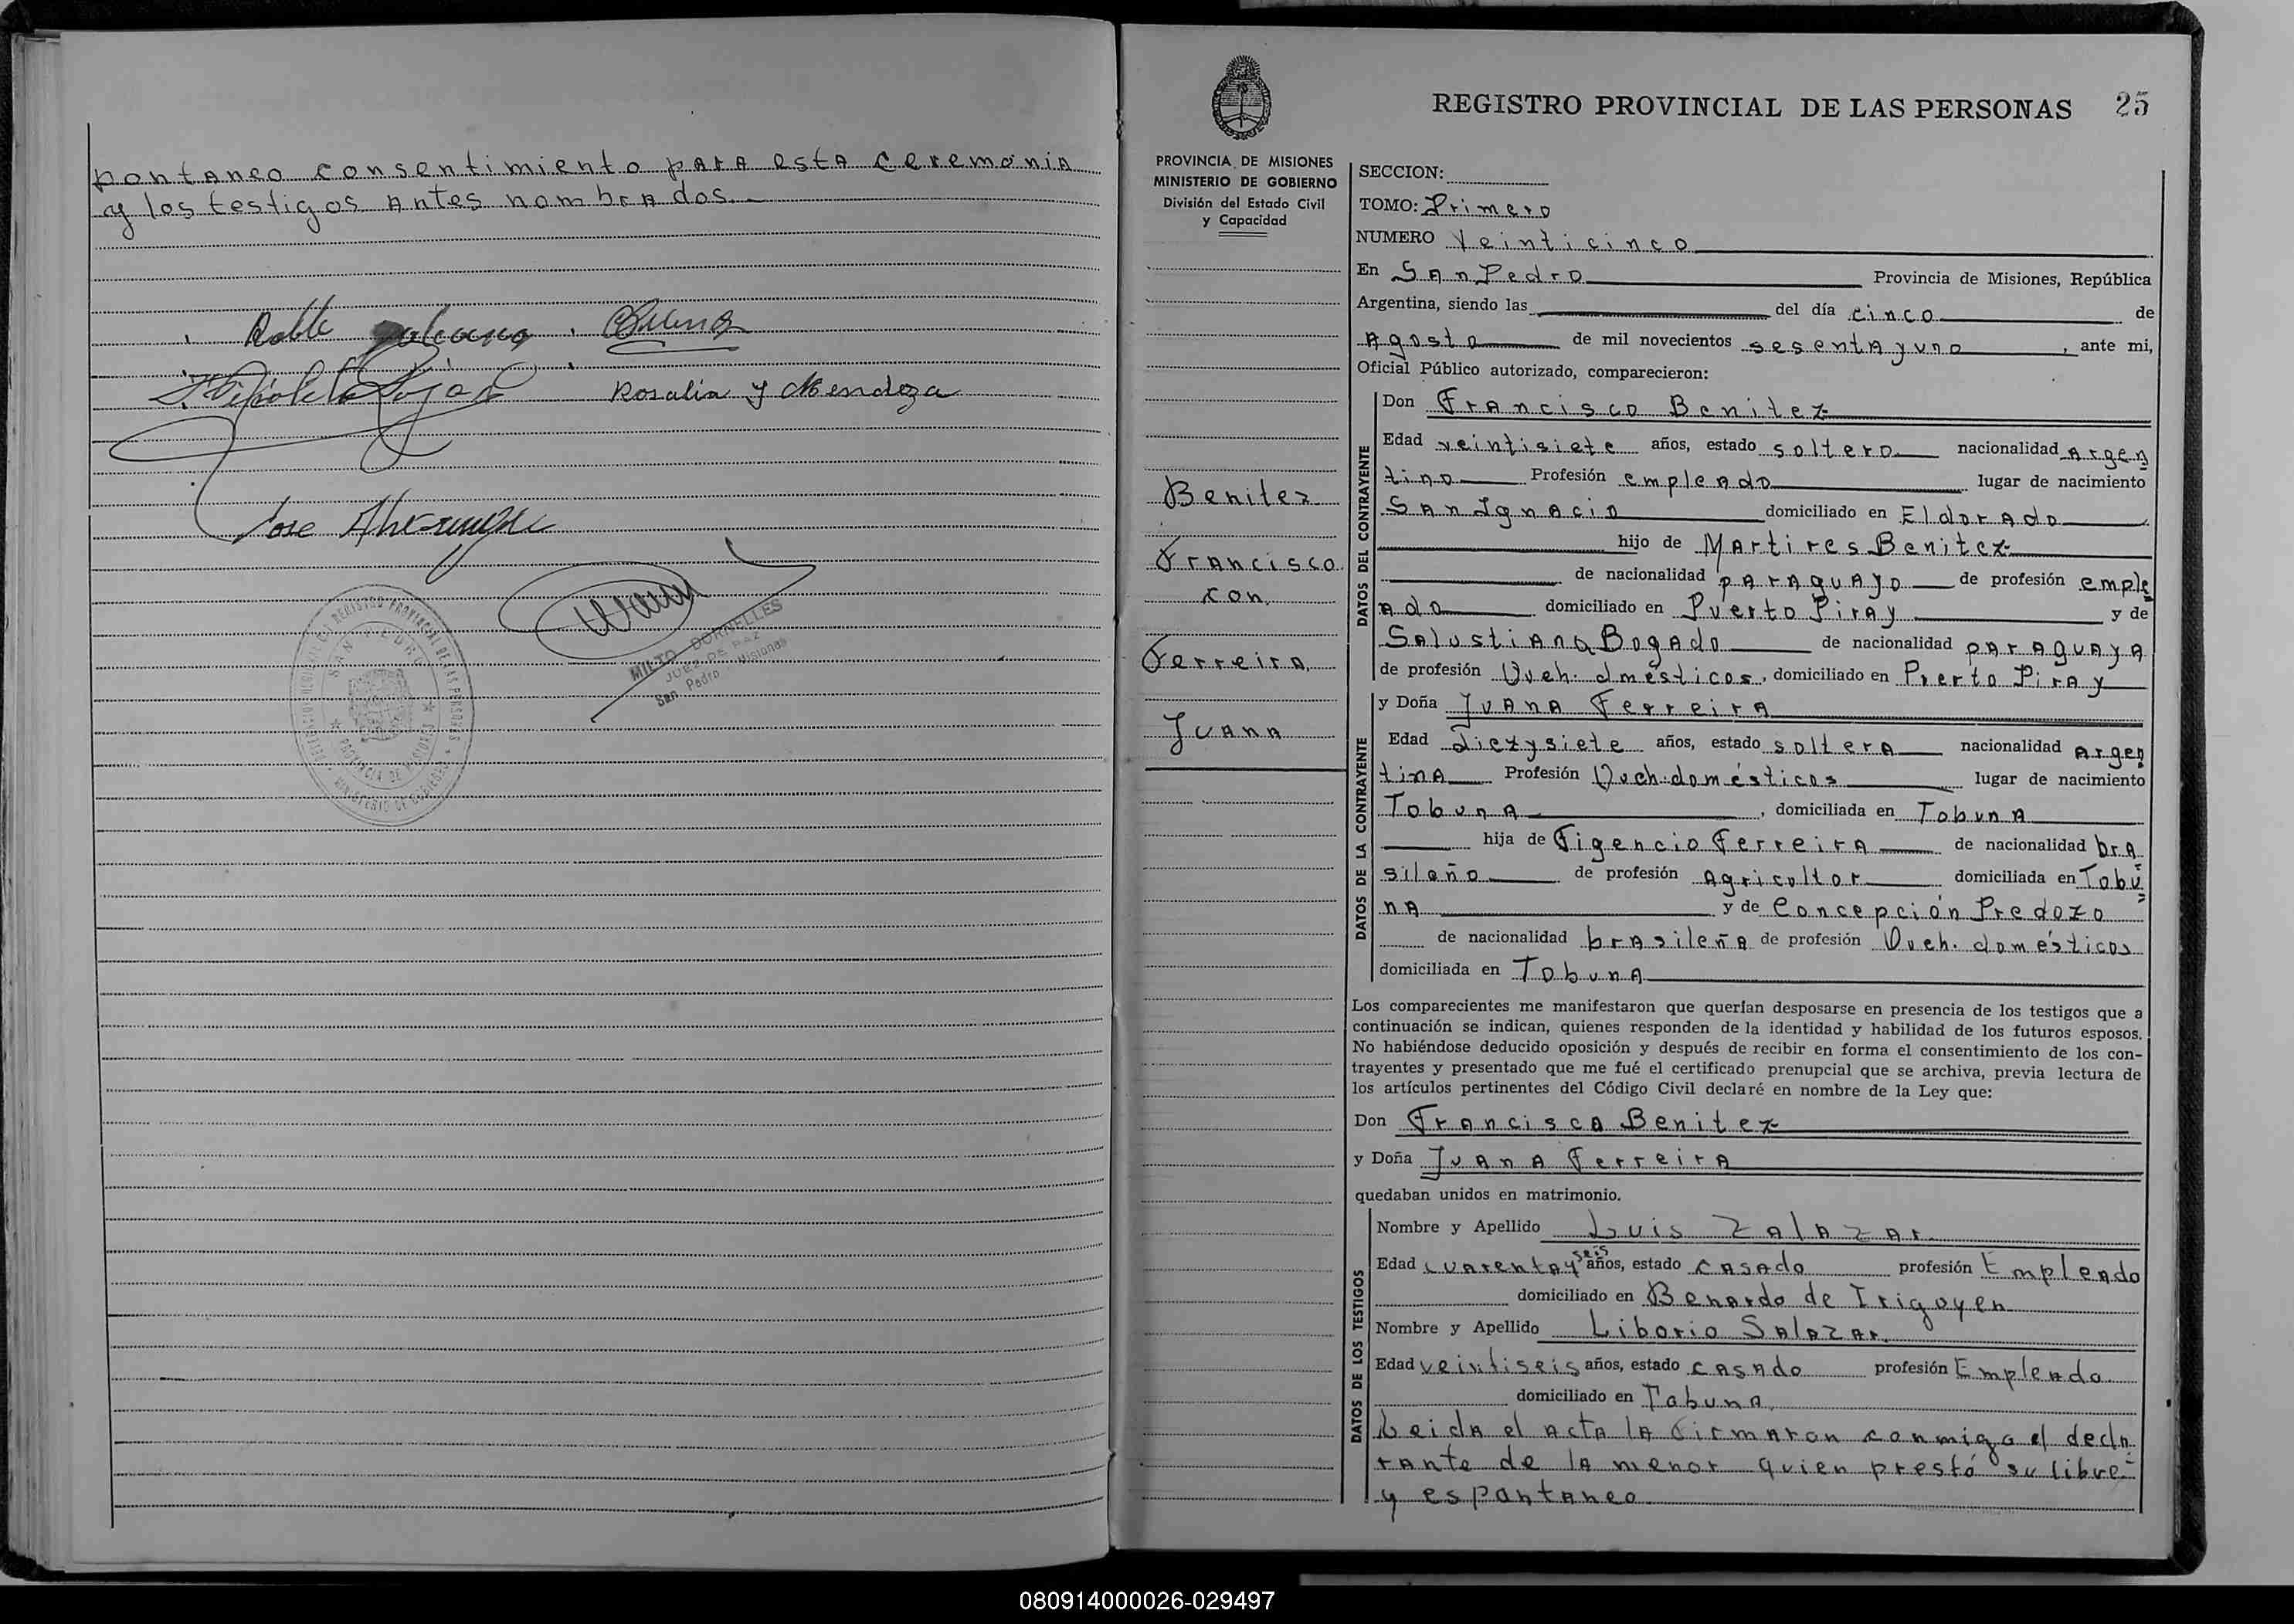 pontaneo consentimiento para esta ceremonia
y los testigos antes nombrados.
Rosalia y Mendoza
Jose
MILTO DORNELLES
JUEZ DE PAZ
San Pedro Misiones
REGISTRO PROVINCIAL DE LAS PERSONAS
SAN PEDRO
PROVINCIA DE MISIONES
MINISTERIO DE GOBIERNO
REGISTRO PROVINCIAL DE LAS PERSONAS 25
PROVINCIA DE MISIONES
MINISTERIO DE GOBIERNO
División del Estado Civil
y Capacidad
Benitez
Francisco
con
Ferreira
Juana
SECCION:
TOMO: Primero
NUMERO Veinticinco
En San Pedro Provincia de Misiones, República
Argentina, siendo las del día cinco de
Agosto de mil novecientos sesenta y uno, ante mi,
Oficial Público autorizado, comparecieron:
DATOS DEL CONTRAYENTE
Don Francisco Benitez
Edad veintisiete años, estado soltero nacionalidad Argen
tino Profesión empleado lugar de nacimiento
San Ignacio domiciliado en Eldorado
hijo de Martires Benitez
de nacionalidad paraguayo de profesión emple
ado domiciliado en Puerto Piray y de
Salustiana Bogado de nacionalidad paraguaya
de profesión Queh. dmésticos, domiciliado en Puerto Piray
DATOS DE LA CONTRAYENTE
y Doña Juana Ferreira
Edad Diezysiete años, estado soltera nacionalidad Argen
tina Profesión Queh. domésticos lugar de nacimiento
Tobuna, domiciliada en Tobuna
hija de Figencio Ferreira de nacionalidad bra
sileño de profesión Agricultor domiciliada en Tobu
na y de Concepción Predozo
de nacionalidad brasileña de profesión Queh. domésticos
domiciliada en Tobuna
Los comparecientes me manifestaron que querían desposarse en presencia de los testigos que a
continuación se indican, quienes responden de la identidad y habilidad de los futuros esposos.
No habiéndose deducido oposición y después de recibir en forma el consentimiento de los con-
trayentes y presentado que me fué el certificado prenupcial que se archiva, previa lectura de
los artículos pertinentes del Código Civil declaré en nombre de la Ley que:
Don Francisco Benitez
y Doña Juana Ferreira
quedaban unidos en matrimonio.
DATOS DE LOS TESTIGOS
Nombre y Apellido Luis Zalazar
Edad cuarentay seis años, estado casado profesión Empleado
domiciliado en Benardo de Irigoyen
Nombre y Apellido Liborio Salazar
Edad veintiseis años, estado casado profesión Empleado
domiciliado en Tabuna
Leida el acta la firmaron conmigo el decla
rante de la menor quien prestó su libre
y espontaneo
080914000026-029497